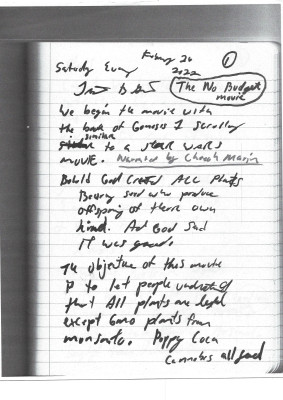 February 26
2022
①
Saturday Evening
The No Budget
movie
We begin the movie with
the book of Genesis 1 scrolling
similar
to a STAR WARS
movie. Narrated by Cheech Marin
Behold God Created ALL Plants
Bearing seed who produce
offspring of there own
kind. And God said
IT was good.
The objective of this movie
is to let people understand
that All plants are legal
except GMO plants from
monsanto. Poppy Coca
Cannabis all good